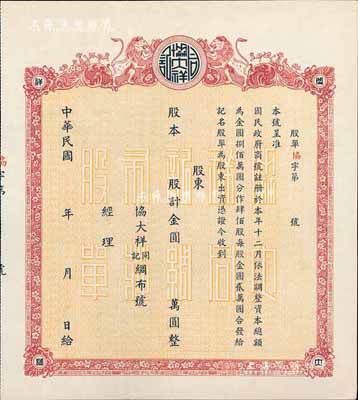 股單協字第　　號
本號呈准
國民政府商號註冊於本年十二月依法調整資本總額
為金圓捌佰萬圓分作肆佰股每股金圓貳萬圓合發給
記名股單為股東出資憑證今收到
股東
股本　股計金圓　萬圓整
協大祥同記綢布號
經理
中華民國　年　月　日給
協大祥
同
記
祥
協字第
號